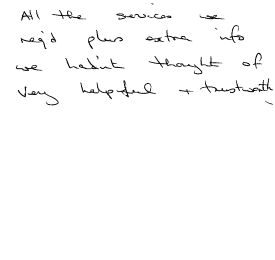 All the services we
req'd plus extra info
we hadn't thought of
Very helpful + trustworth